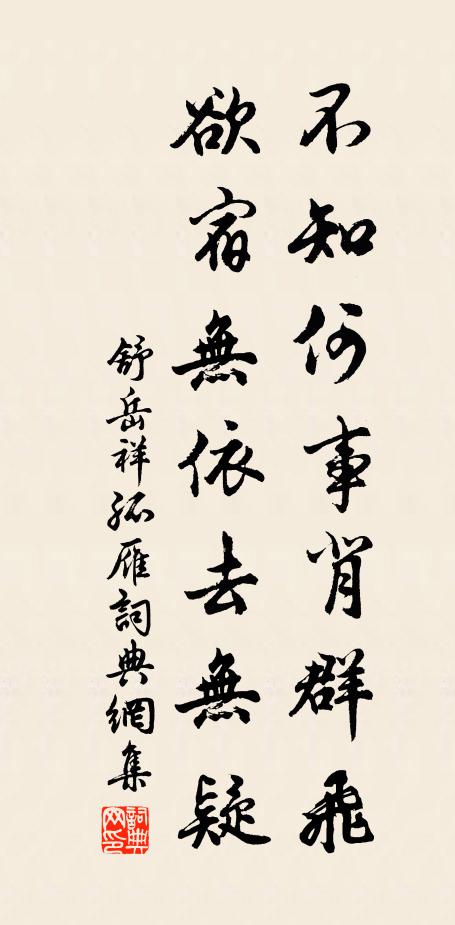 不知何事背群飛
欲宿無依去無疑
舒岳祥孤雁詞典網集
詞典
网印